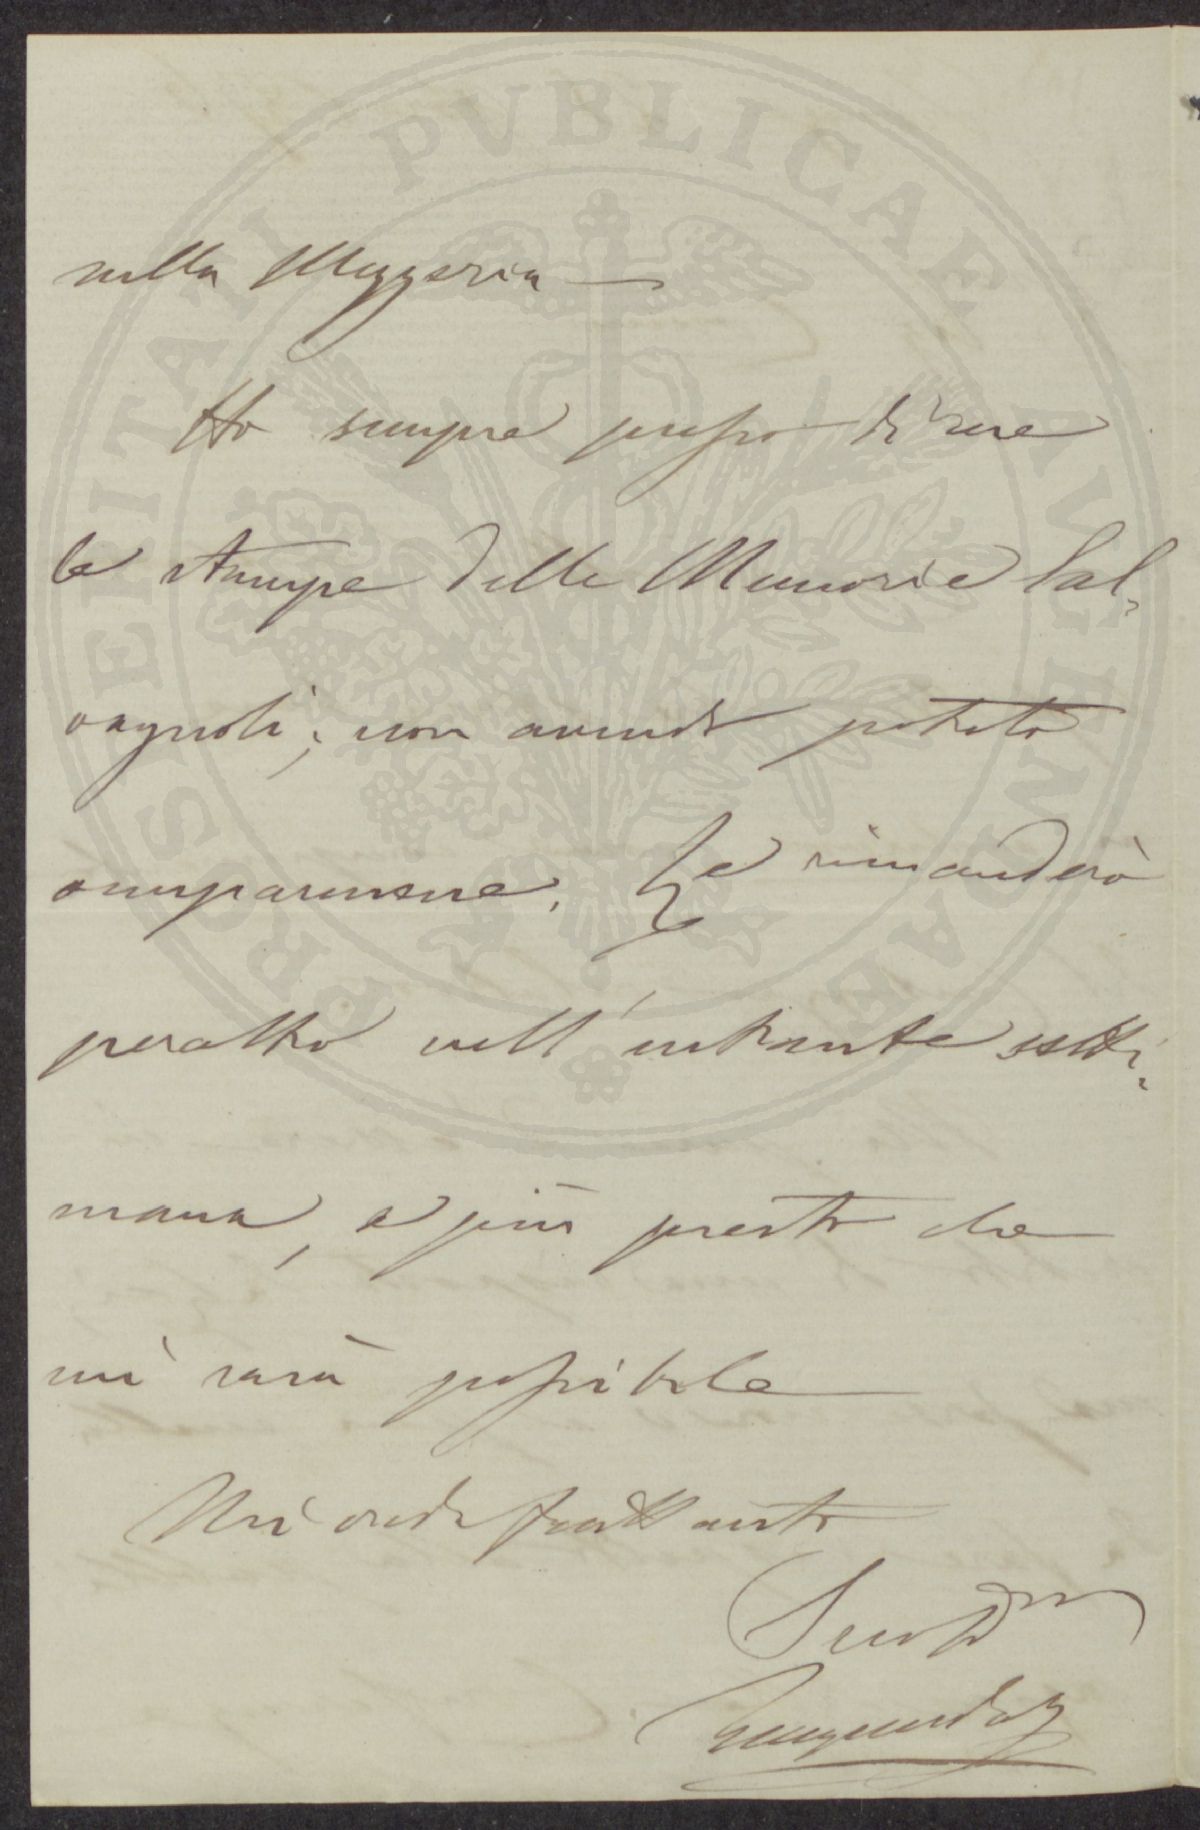 PROSPERITATI PVBLICAE AVGENDAE
sulla Mezzeria
Ho sempre presso di me
le stampe delle Memorie Sal-
vagnoli; non avendo potuto
occuparmene. Le rimanderò
peraltro nell'entrante setti-
mana, o più presto che
mi sarà possibile
Mi creda frattanto
Suo